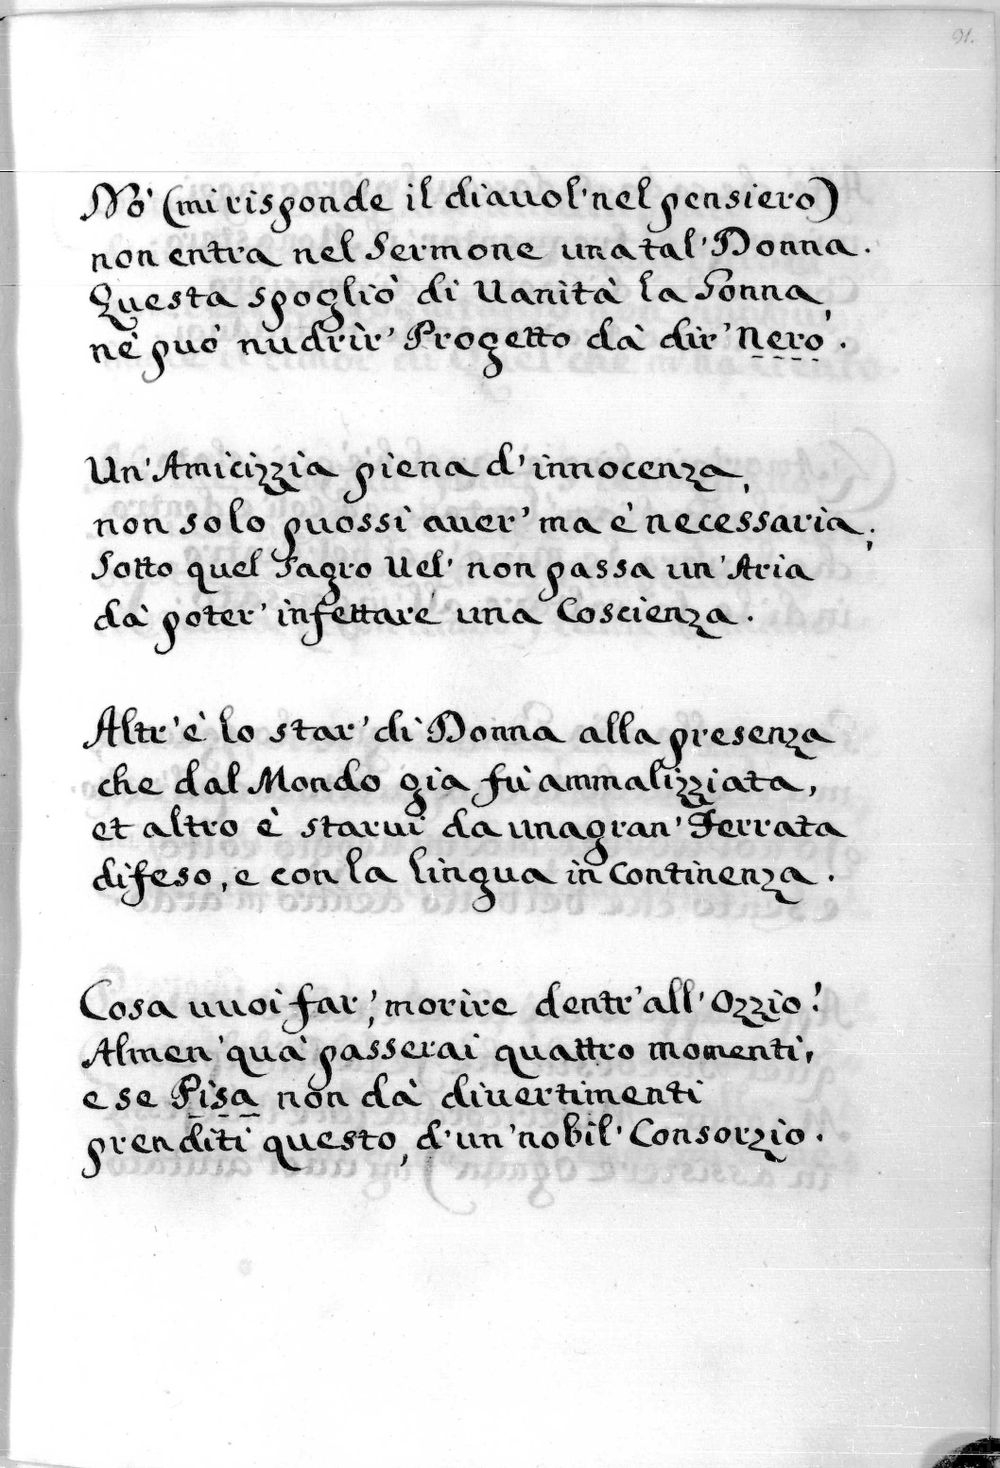 91.
Nò (mi risponde il diauol' nel pensiero)
non entra nel Sermone una tal' Donna.
Questa spogliò di Uanità la Gonna,
nè può nudrir' Progetto dà dir' Nero.
Un' Amicizzia piena d' innocenza,
non solo puossi auer' ma è necessaria;
Sotto quel Sagro Uel' non passa un' Aria
dà poter' infettare una Coscienza.
Altr' è lo star' di Donna alla presenza
che dal Mondo gia fù ammalizziata,
et altro è starui da una gran' Ferrata
difeso, e con la lingua in Continenza.
Cosa uuoi far', morire dentr' all' Ozzio!
Almen' quà passerai quattro momenti,
e se Pisa non dà diuertimenti
prenditi questo, d' un' nobil' Consorzio.